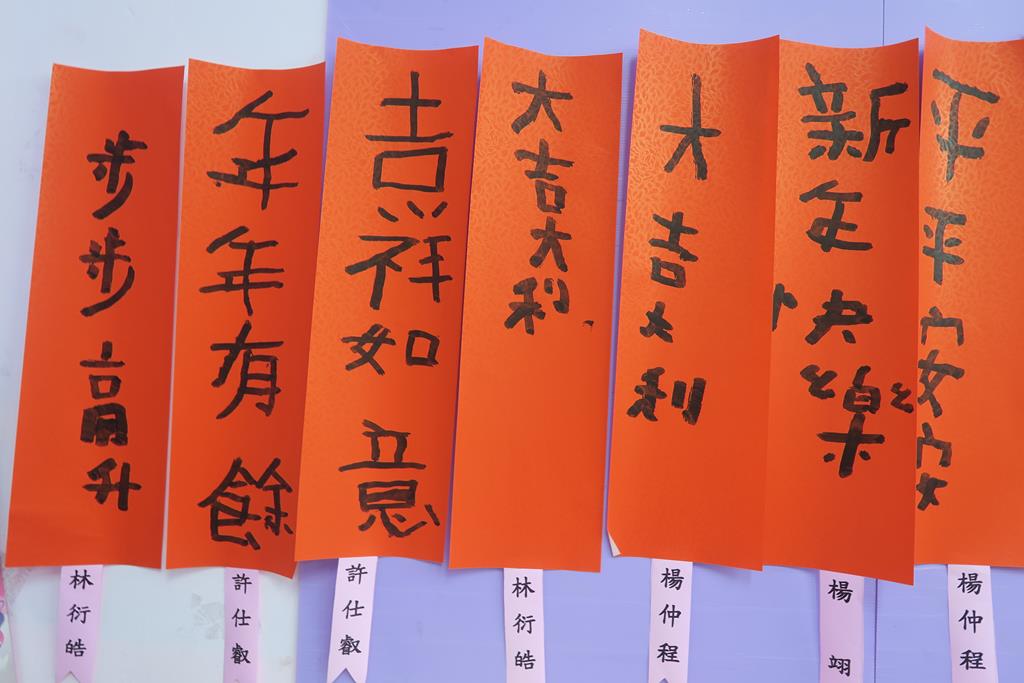 步步高升
林衍皓
年年有餘
許仕叡
吉祥如意
許仕叡
大吉大利
林衍皓
大吉大利
楊仲程
新年快樂
楊翊
平平安安
楊仲程